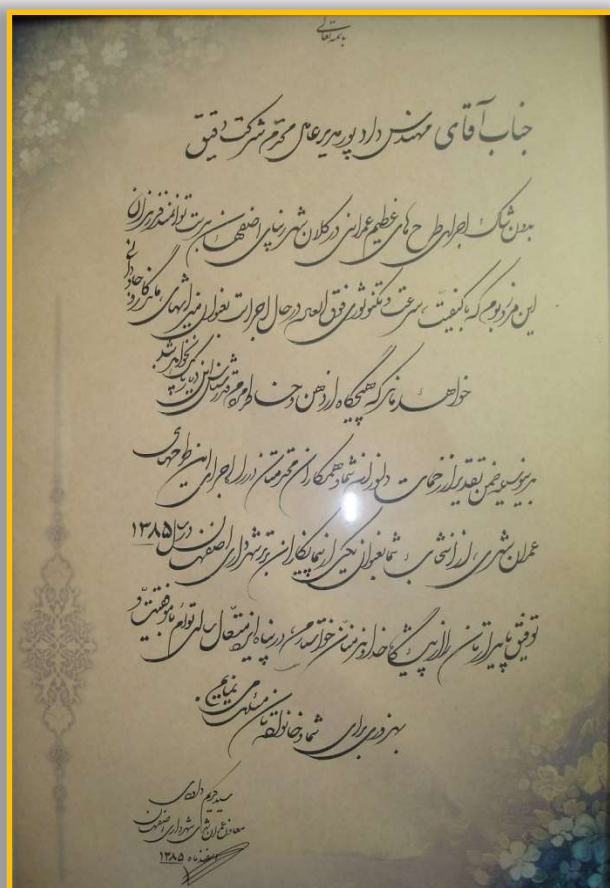 باسمه تعالی
جناب آقای مهندس داد پور مدیر عامل محترم شرکت دقیق
بدون شک اجرای طرح های عظیم عمرانی در کلان شهر زیبای اصفهان بدست توانمند فرزندان
این مرز و بوم که با کیفیت، سرعت و تکنولوژی فوق العاده در حال اجراست بعنوان میراثهای ماندگار و جاودانی
خواهند ماند که هیچگاه از ذهن و خاطر مردم قدرشناس این دیار پاک نخواهد شد
بدینوسیله ضمن تقدیر از زحمات دلسوزانه شما و همکاران محترمتان در راه اجرای این طرحهای
عمران شهری، از انتخاب شما بعنوان یکی از پیمانکاران برتر شهرداری اصفهان در سال ۱۳۸۵
توفیق پایدارتان را از پیشگاه خداوند منان خواستارم و در پناه ایزد متعال سالی توأم با موفقیت و
بهروزی برای شما و خانواده تان مسئلت می نمایم.
سید کریم داودی
معاون عمران شهری شهرداری اصفهان
اسفند ماه ۱۳۸۵